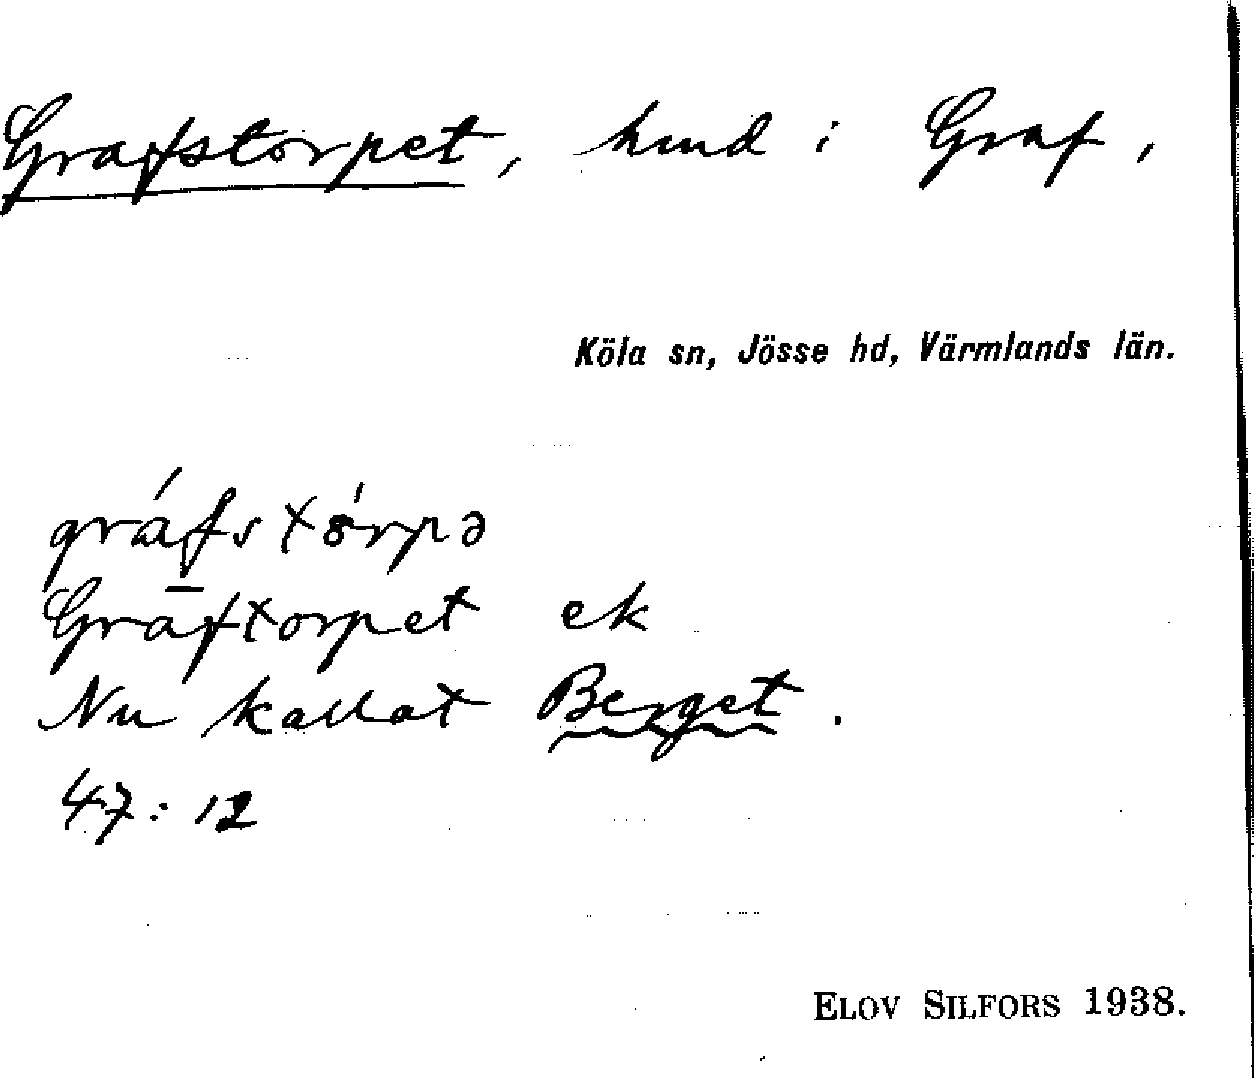 Grafstorpet, hmd i Graf,
Köla sn, Jösse hd, Värmlands län.
gráfstórpə
Graftorpet ek
Nu kallat Berget.
47:12
ELOV SILFORS 1938.